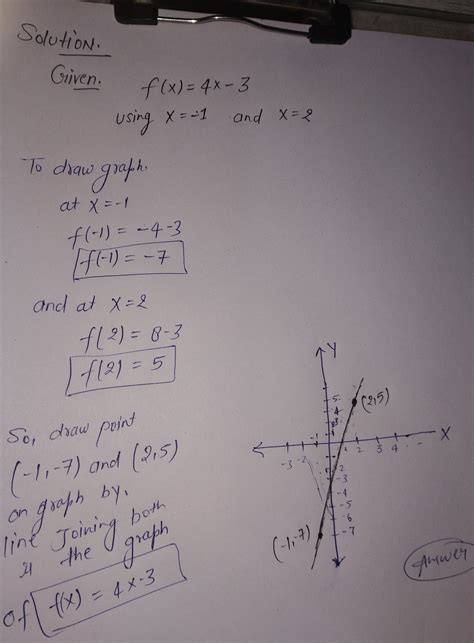 Solution.
Given.
f(x) = 4x-3
using x=-1 and x=2
To draw graph.
at x=-1
f(-1) = -4-3
f(-1) = -7
and at x=2
f(2) = 8-3
f(2) = 5
So, draw point
(-1,-7) and (2,5)
on graph by,
line Joining both
is the graph
of f(x) = 4x-3
Y
5
4
3
(2,5)
X
-3 -2
1 2 3 4
-2
-3
-4
-5
-6
-7
(-1,-7)
Answer